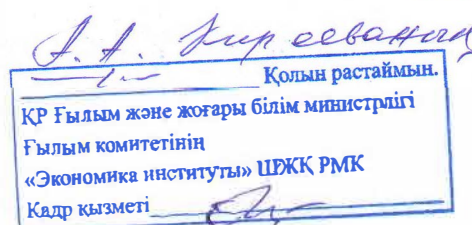 А. А. Киреевының
Қолын растаймын.
ҚР Ғылым және жоғары білім министрлігі
Ғылым комитетінің
«Экономика институты» ШЖҚ РМК
Кадр қызметі